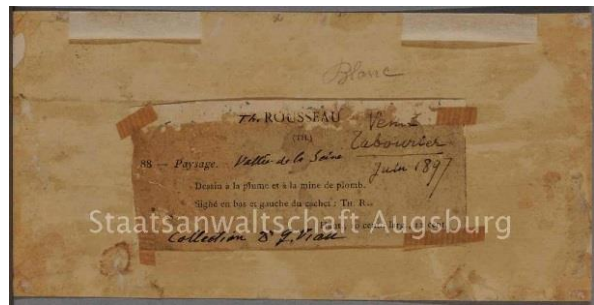 Blanc
Th. ROUSSEAU
(TH.)
Vente
Tabourier
Juin 1897
88 — Paysage. Vallée de la Seine
Dessin à la plume et à la mine de plomb.
Signé en bas et gauche du cachet: TH. R.
Staatsanwaltschaft Augsburg
Collection Dr G. Viau